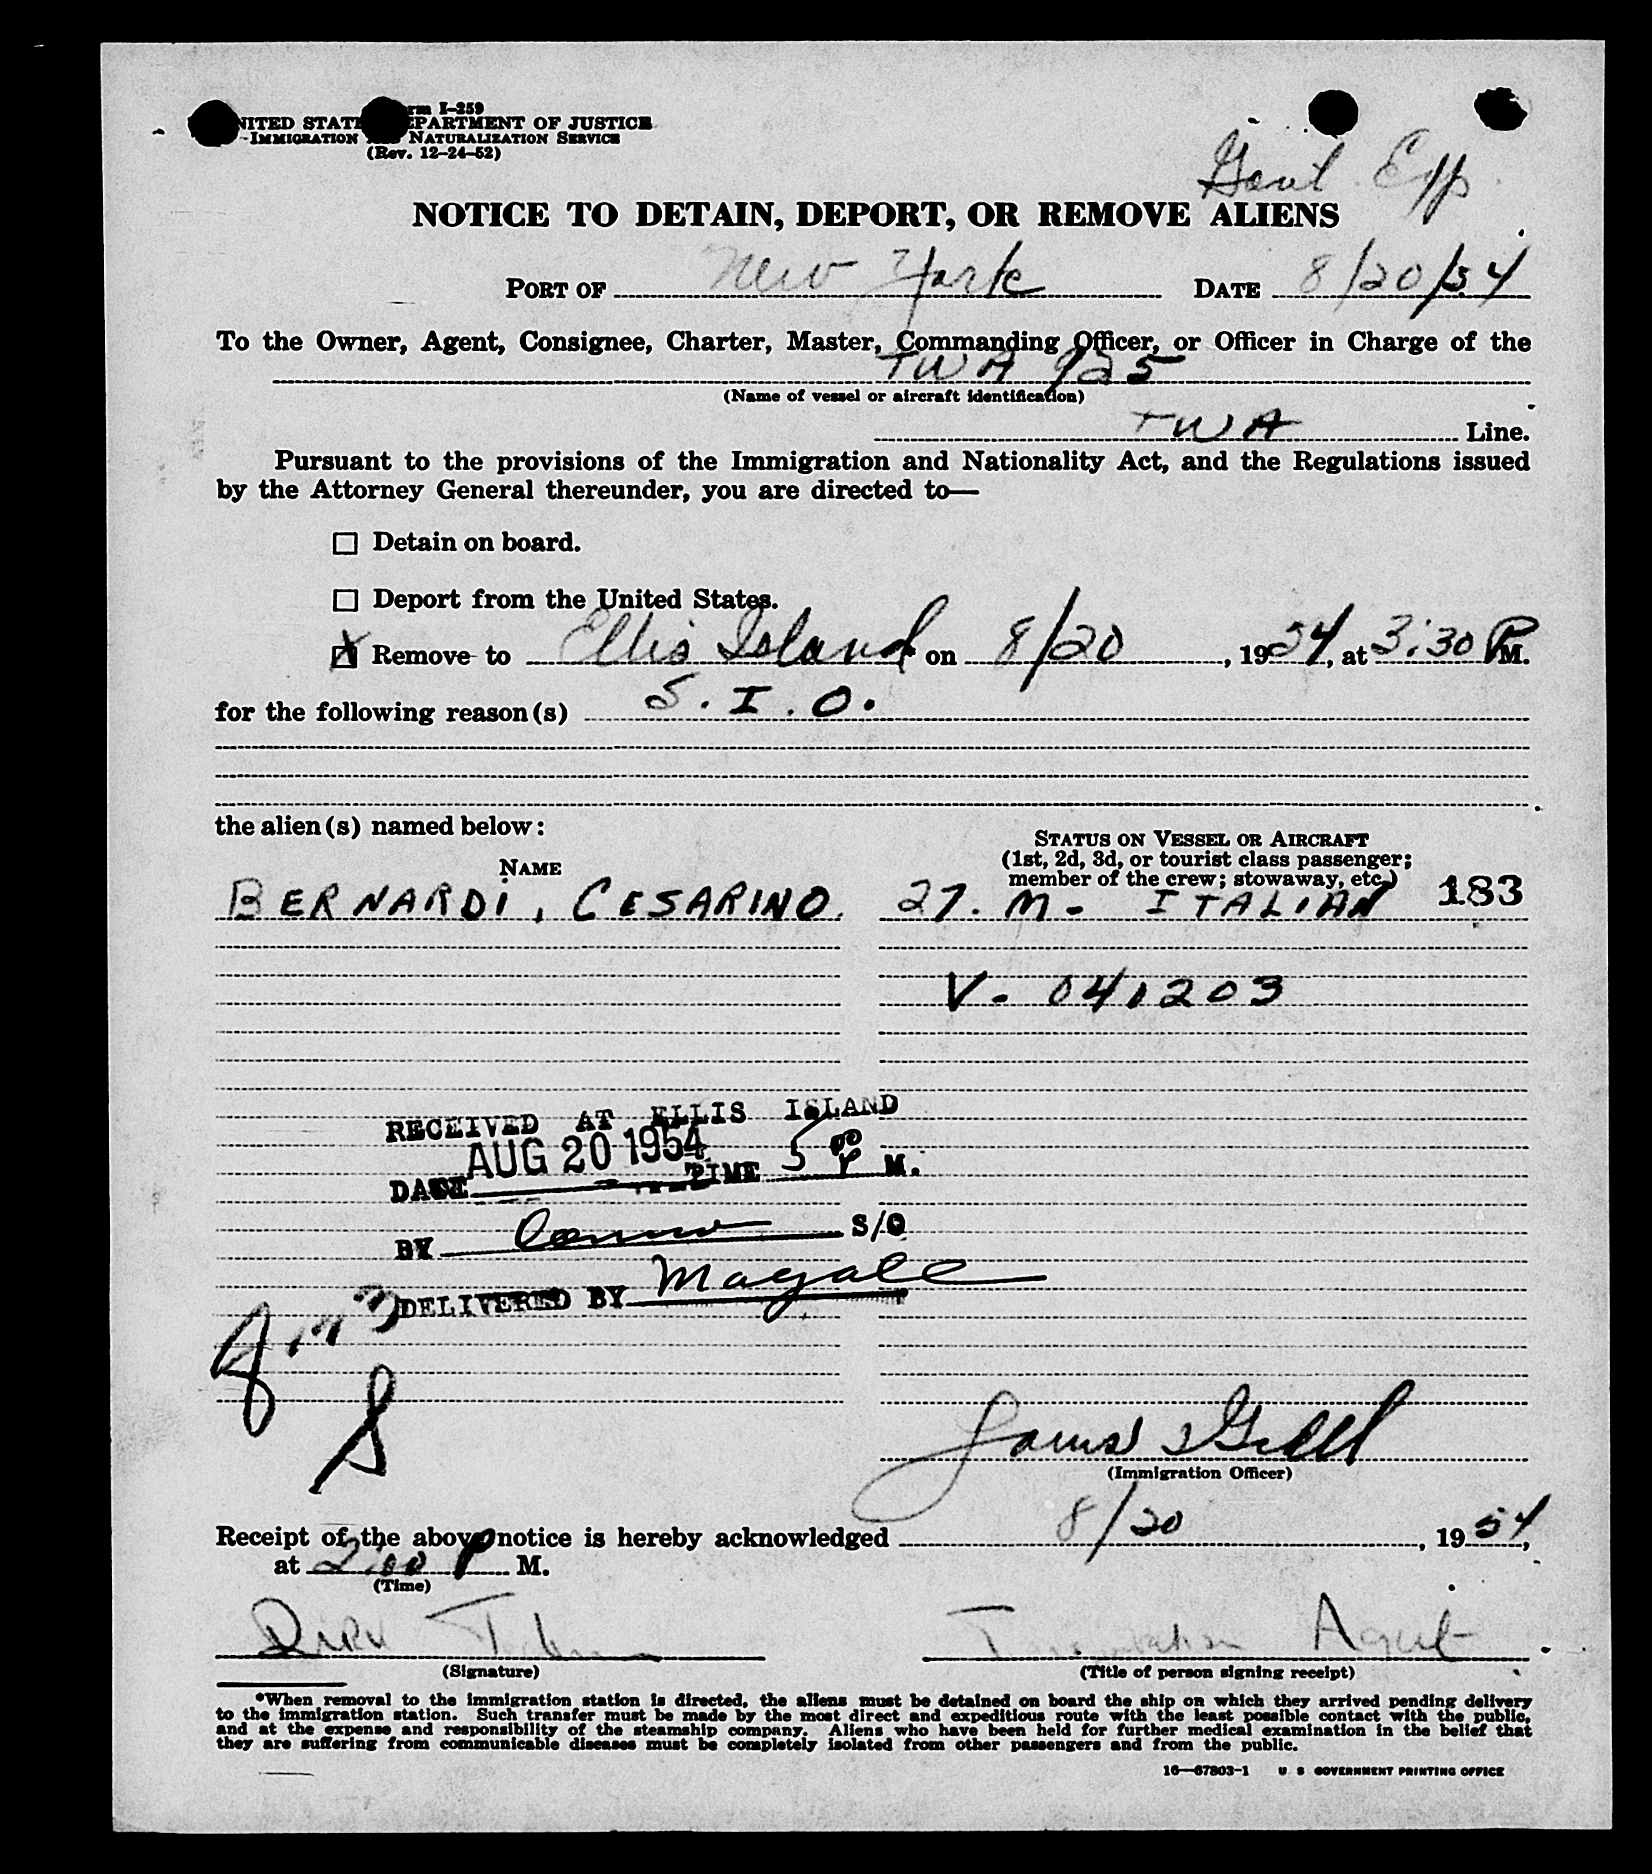 Form I-259
UNITED STATES DEPARTMENT OF JUSTICE
IMMIGRATION AND NATURALIZATION SERVICE
(Rev. 12-24-52)
Govt. Exp.
NOTICE TO DETAIN, DEPORT, OR REMOVE ALIENS
PORT OF New York DATE 8/20/54
To the Owner, Agent, Consignee, Charter, Master, Commanding Officer, or Officer in Charge of the
TWA 925
(Name of vessel or aircraft identification)
TWA Line.
Pursuant to the provisions of the Immigration and Nationality Act, and the Regulations issued
by the Attorney General thereunder, you are directed to—
☐ Detain on board.
☐ Deport from the United States.
☒ Remove to Ellis Island on 8/20, 1954, at 3:30 P M.
for the following reason(s) S. I. O.
the alien(s) named below:
STATUS ON VESSEL OR AIRCRAFT
(1st, 2d, 3d, or tourist class passenger;
member of the crew; stowaway, etc.)
NAME
BERNARDI, CESARINO. 27. M- ITALIAN 183
V- 041203
RECEIVED AT ELLIS ISLAND
DATE AUG 20 1954 TIME 5 00 P M.
BY S/O
DELIVERED BY Magale
James Gill
(Immigration Officer)
Receipt of the above notice is hereby acknowledged 8/20, 1954,
at 2:00 P M.
(Time)
Agent
(Signature) (Title of person signing receipt)
*When removal to the immigration station is directed, the aliens must be detained on board the ship on which they arrived pending delivery
to the immigration station. Such transfer must be made by the most direct and expeditious route with the least possible contact with the public,
and at the expense and responsibility of the steamship company. Aliens who have been held for further medical examination in the belief that
they are suffering from communicable diseases must be completely isolated from other passengers and from the public.
16—67803-1 U S GOVERNMENT PRINTING OFFICE